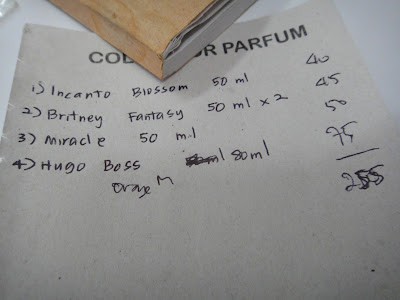 COL OR PARFUM
1) Incanto Blossom 50 ml 40
2) Britney Fantasy 50 ml x 2 45
3) Miracle 50 ml 50
4) Hugo Boss ml 80ml 75
Orange M
255